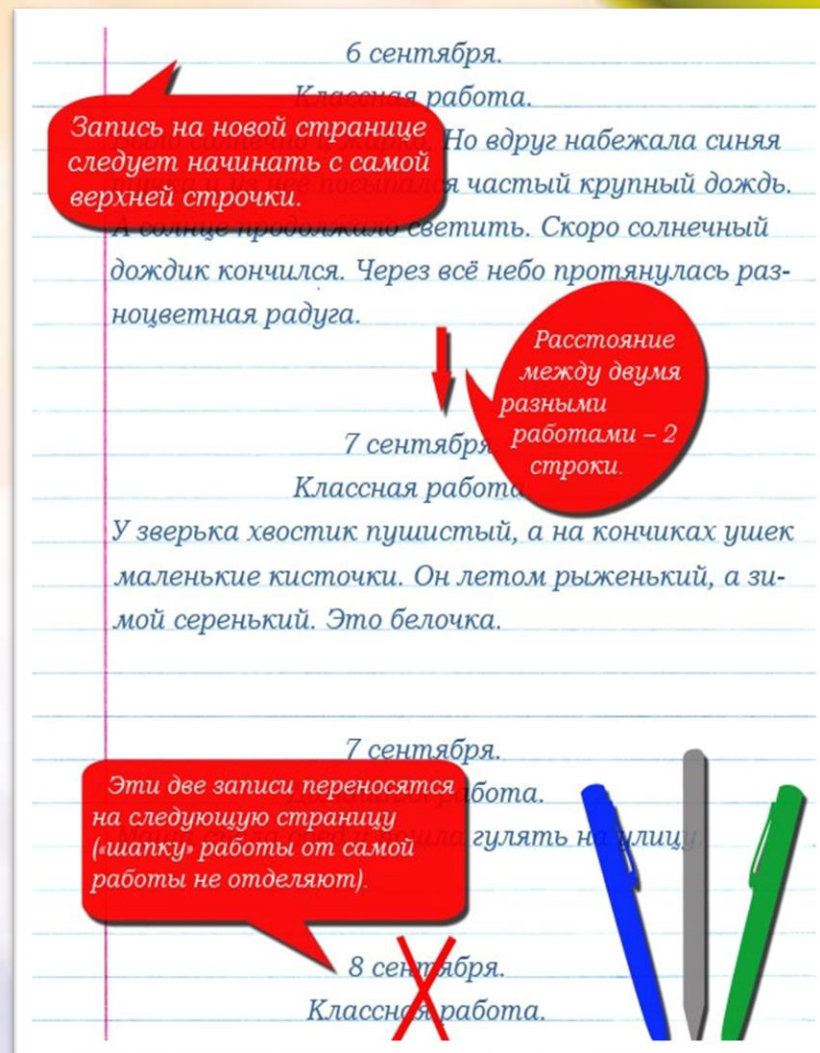 6 сентября.
Классная работа.
Запись на новой странице
следует начинать с самой
верхней строчки.
Но вдруг набежала синяя
посыпался частый крупный дождь.
А солнце продолжало светить. Скоро солнечный
дождик кончился. Через всё небо протянулась раз-
ноцветная радуга.
Расстояние
между двумя
разными
работами – 2
строки.
7 сентября
Классная работа
У зверька хвостик пушистый, а на кончиках ушек
маленькие кисточки. Он летом рыженький, а зи-
мой серенький. Это белочка.
7 сентября.
работа.
гулять на улицу.
Эти две записи переносятся
на следующую страницу
(«шапку» работы от самой
работы не отделяют).
8 сентября.
Классная работа.